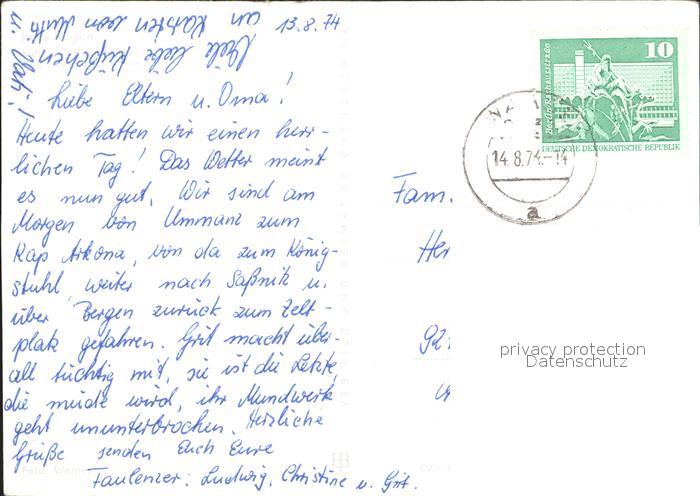 13.8.74
Viele liebe Küßchen
an Karsten von Mutti
u. Vati!
Liebe Eltern u. Oma!
Heute hatten wir einen herr-
lichen Tag! Das Wetter meint
es nun gut. Wir sind am
Morgen von Ummanz zum
Kap Arkona, von da zum König-
stuhl, weiter nach Saßnitz u.
über Bergen zurück zum Zelt-
platz gefahren. Grit macht über-
all tüchtig mit, sie ist die Letzte
die müde wird, ihr Mundwerk
geht ununterbrochen. Herzliche
Grüße senden Euch Eure
Faulenzer: Ludwig, Christine u. Grit.
Foto: Werner
10
Berlin-Rathausstraße
DEUTSCHE DEMOKRATISCHE REPUBLIK
14.8.74-14
a
Fam.
Her
92
privacy protection
Datenschutz